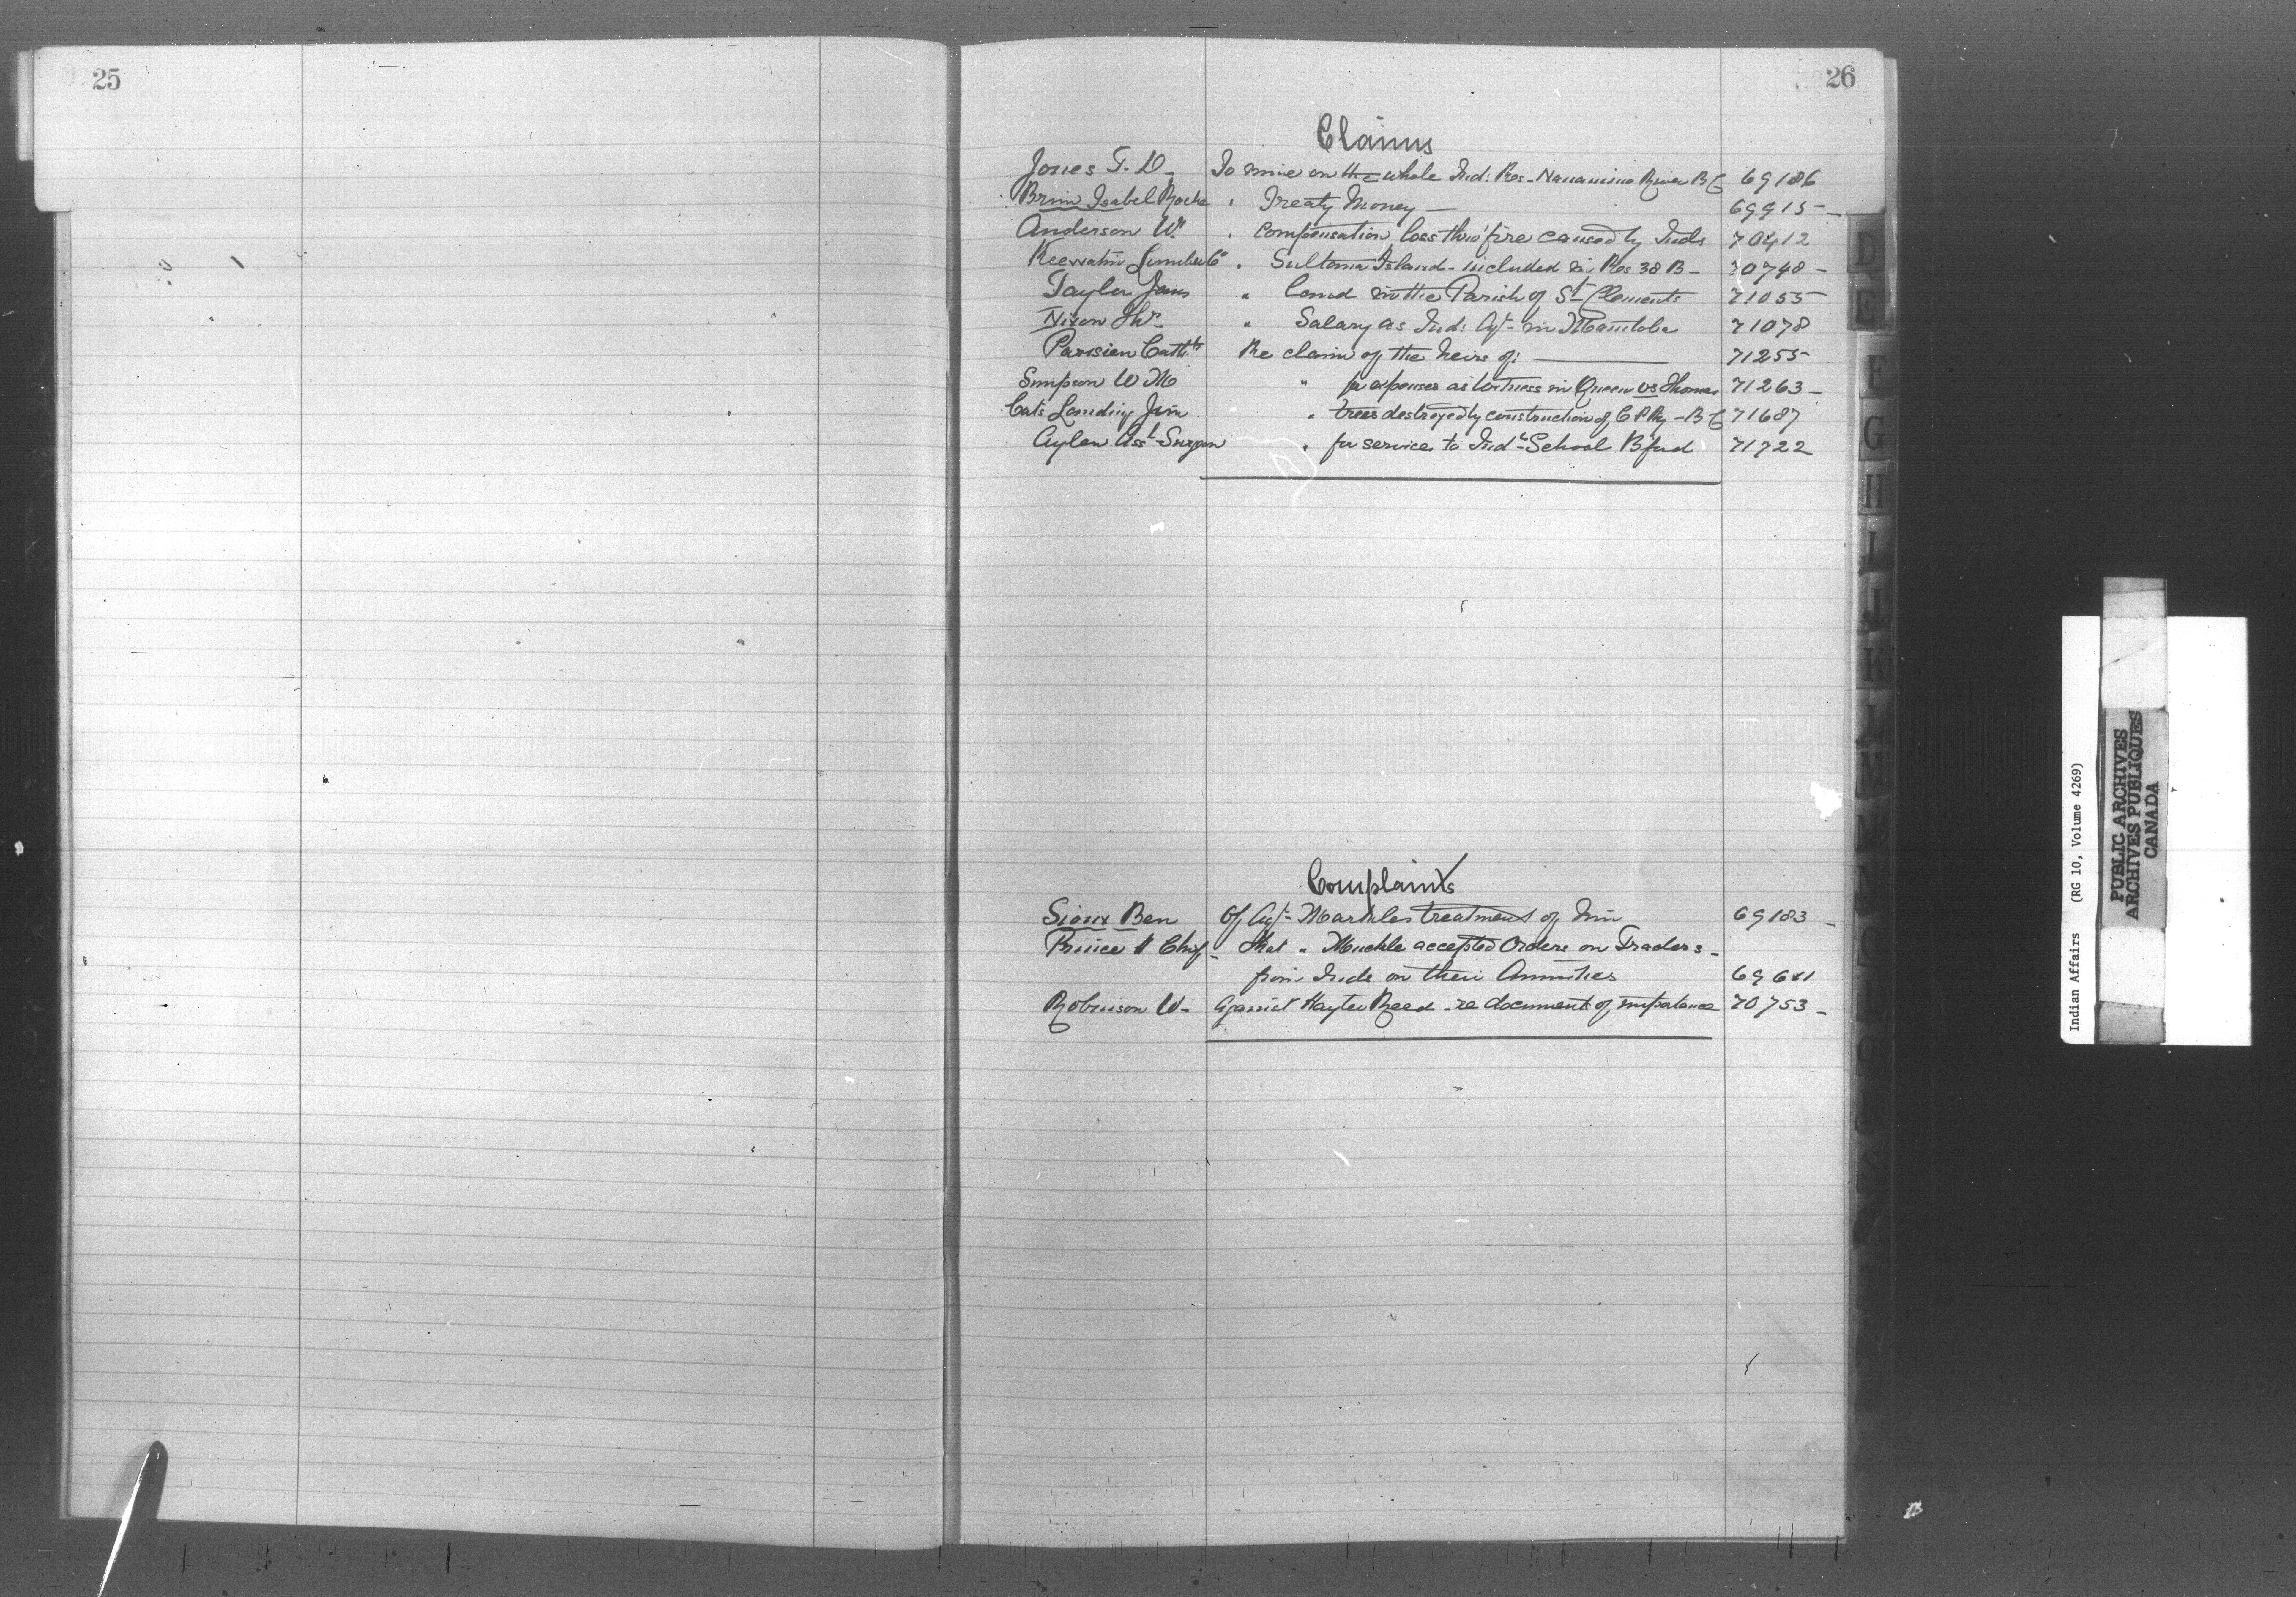 25
26
Claims
Jones T. D. To mine on the whole Ind: Res - Nanaimo River BC 69186
Brim Isabel Roche " Treaty Money — 69915 -
Anderson Wm " Compensation loss thro' fire caused by Inds 70412
Keewatin Lumber Co " Sultana Island - included in Res 38 B - 70748 -
Taylor Jams " land in the Parish of St Clements 71055
Nixon Thos " Salary as Ind: Agt - in Manitoba 71078
Parisien Re claim of the heirs of: — 71255
Simpson W M " for expenses as witness in Queen vs Thomas 71263 -
Cat's Landing Jim " trees destroyed by construction of C P Ry - BC 71687
Aylen Asst Surgeon " for services to Indl School Bford 71722
Complaints
Sioux Ben Of Agt Markles treatment of him 69183 -
Prince Chief - that " Muckle accepted Orders on Traders -
from Inds on their Annuities
Robinson W - Against Hayter Reed - re documents of importance 70753 -
D
E
F
G
H
I
J
K
L
M
Indian Affairs (RG 10, Volume 4269)
PUBLIC ARCHIVES
ARCHIVES PUBLIQUES
CANADA